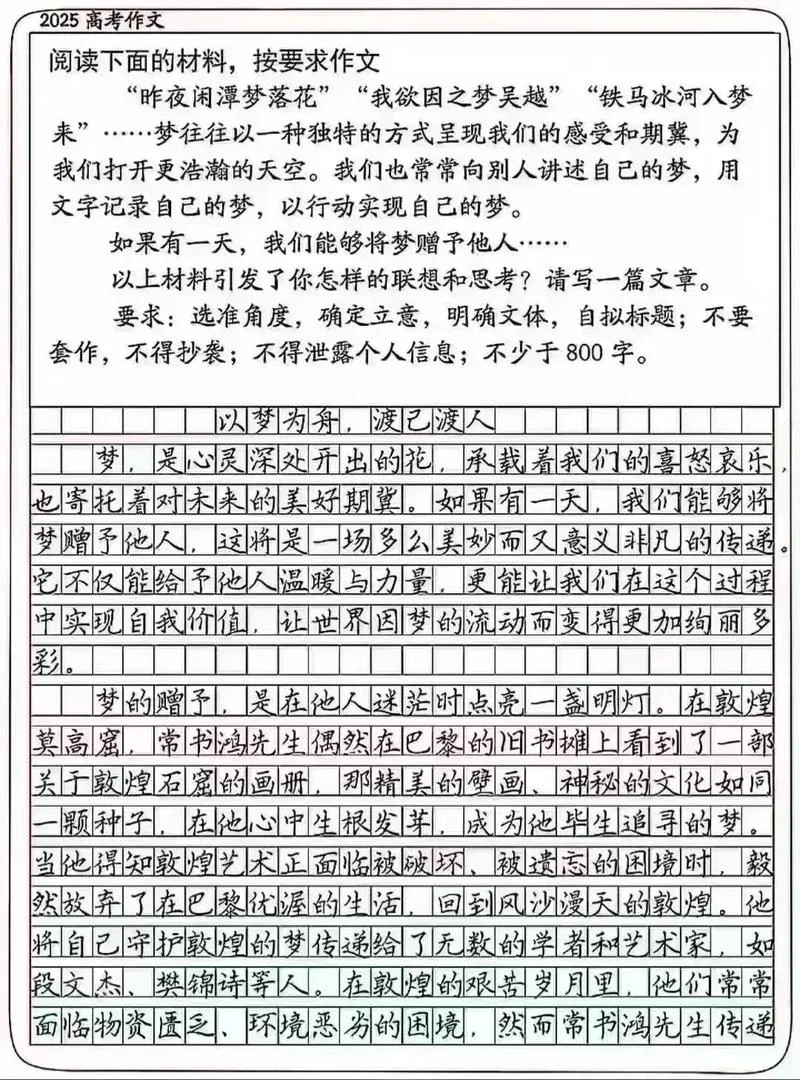 2025 高考作文
阅读下面的材料，按要求作文
“昨夜闲潭梦落花”“我欲因之梦吴越”“铁马冰河入梦
来”……梦往往以一种独特的方式呈现我们的感受和期冀，为
我们打开更浩瀚的天空。我们也常常向别人讲述自己的梦，用
文字记录自己的梦，以行动实现自己的梦。
如果有一天，我们能够将梦赠予他人……
以上材料引发了你怎样的联想和思考？请写一篇文章。
要求：选准角度，确定立意，明确文体，自拟标题；不要
套作，不得抄袭；不得泄露个人信息；不少于 800 字。
以梦为舟，渡己渡人
梦，是心灵深处开出的花，承载着我们的喜怒哀乐，
也寄托着对未来的美好期冀。如果有一天，我们能够将
梦赠予他人，这将是一场多么美妙而又意义非凡的传递。
它不仅能给予他人温暖与力量，更能让我们在这个过程
中实现自我价值，让世界因梦的流动而变得更加绚丽多
彩。
梦的赠予，是在他人迷茫时点亮一盏明灯。在敦煌
莫高窟，常书鸿先生偶然在巴黎的旧书摊上看到了一部
关于敦煌石窟的画册，那精美的壁画、神秘的文化如同
一颗种子，在他心中生根发芽，成为他毕生追寻的梦。
当他得知敦煌艺术正面临被破坏、被遗忘的困境时，毅
然放弃了在巴黎优渥的生活，回到风沙漫天的敦煌。他
将自己守护敦煌的梦传递给了无数的学者和艺术家，如
段文杰、樊锦诗等人。在敦煌的艰苦岁月里，他们常常
面临物资匮乏、环境恶劣的困境，然而常书鸿先生传递